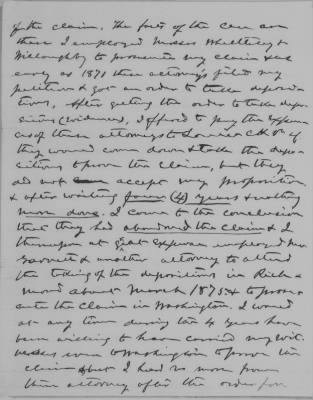 of the claim. The facts of the case are
these I employed Messrs Whittlesey &
Willoughby to prosecute my claim & as
early as 1871 these attorneys filed my
petition & got an order to take deposi-
tions, After getting the order to take depo-
sitions (evidence), I offered to pay the expen-
ses of these attorneys to Louisa C.H. Va if
they would come down & take the depo-
sitions to prove the claim, but they
did not accept my proposition
& after waiting four (4) years & nothing
more done. I came to the conclusion
that they had abandoned the claim & I
thereupon at great expense employed Mr
& another attorney to attend
the taking of the depositions in Rich-
mond about March 1875 & to prose-
cute the claim in Washington. I would
at any time during the 4 years have
been willing to have carried my wit-
nesses even to Washington to prove the
claim but I had no more from
these attorneys after the order for